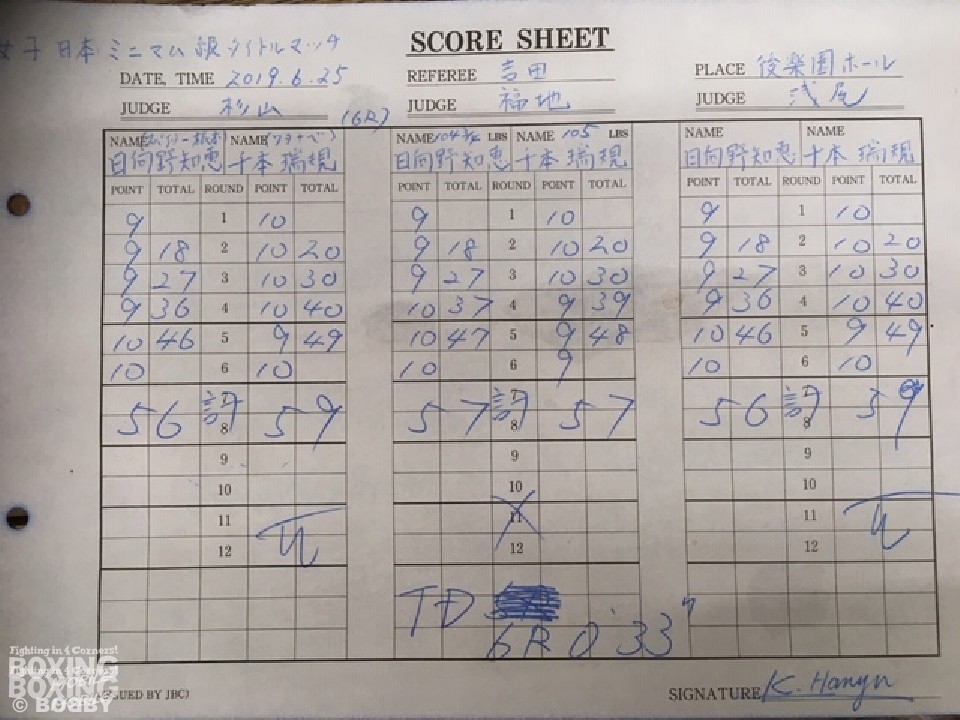 女子日本ミニマム級タイトルマッチ
SCORE SHEET
DATE, TIME 2019.6.25
REFEREE 吉田
PLACE 後楽園ホール
JUDGE 杉山 (6R)
JUDGE 福地
JUDGE 浅尾
NAME NAME (ワタナベ) NAME 104¾ LBS NAME 105 LBS NAME NAME
日向野知恵 千本瑞規 日向野知恵 千本瑞規 日向野知恵 千本瑞規
POINT TOTAL ROUND POINT TOTAL POINT TOTAL ROUND POINT TOTAL POINT TOTAL ROUND POINT TOTAL
9 1 10 9 1 10 9 1 10
9 18 2 10 20 9 18 2 10 20 9 18 2 10 20
9 27 3 10 30 9 27 3 10 30 9 27 3 10 30
9 36 4 10 40 10 37 4 9 39 9 36 4 10 40
10 46 5 9 49 10 47 5 9 48 10 46 5 9 49
10 6 10 10 6 9 10 6 10
56 計 59 57 計 57 56 計 59
8 8 8
9 9 9
10 10 10
11 11 11
12 12 12
TD
6R 0'33"
Fighting in 4 Corners!
BOXING
Fighting in 4 Corners!
BOXING
© BOBBY
(ISSUED BY JBC)
SIGNATURE K. Hanyu